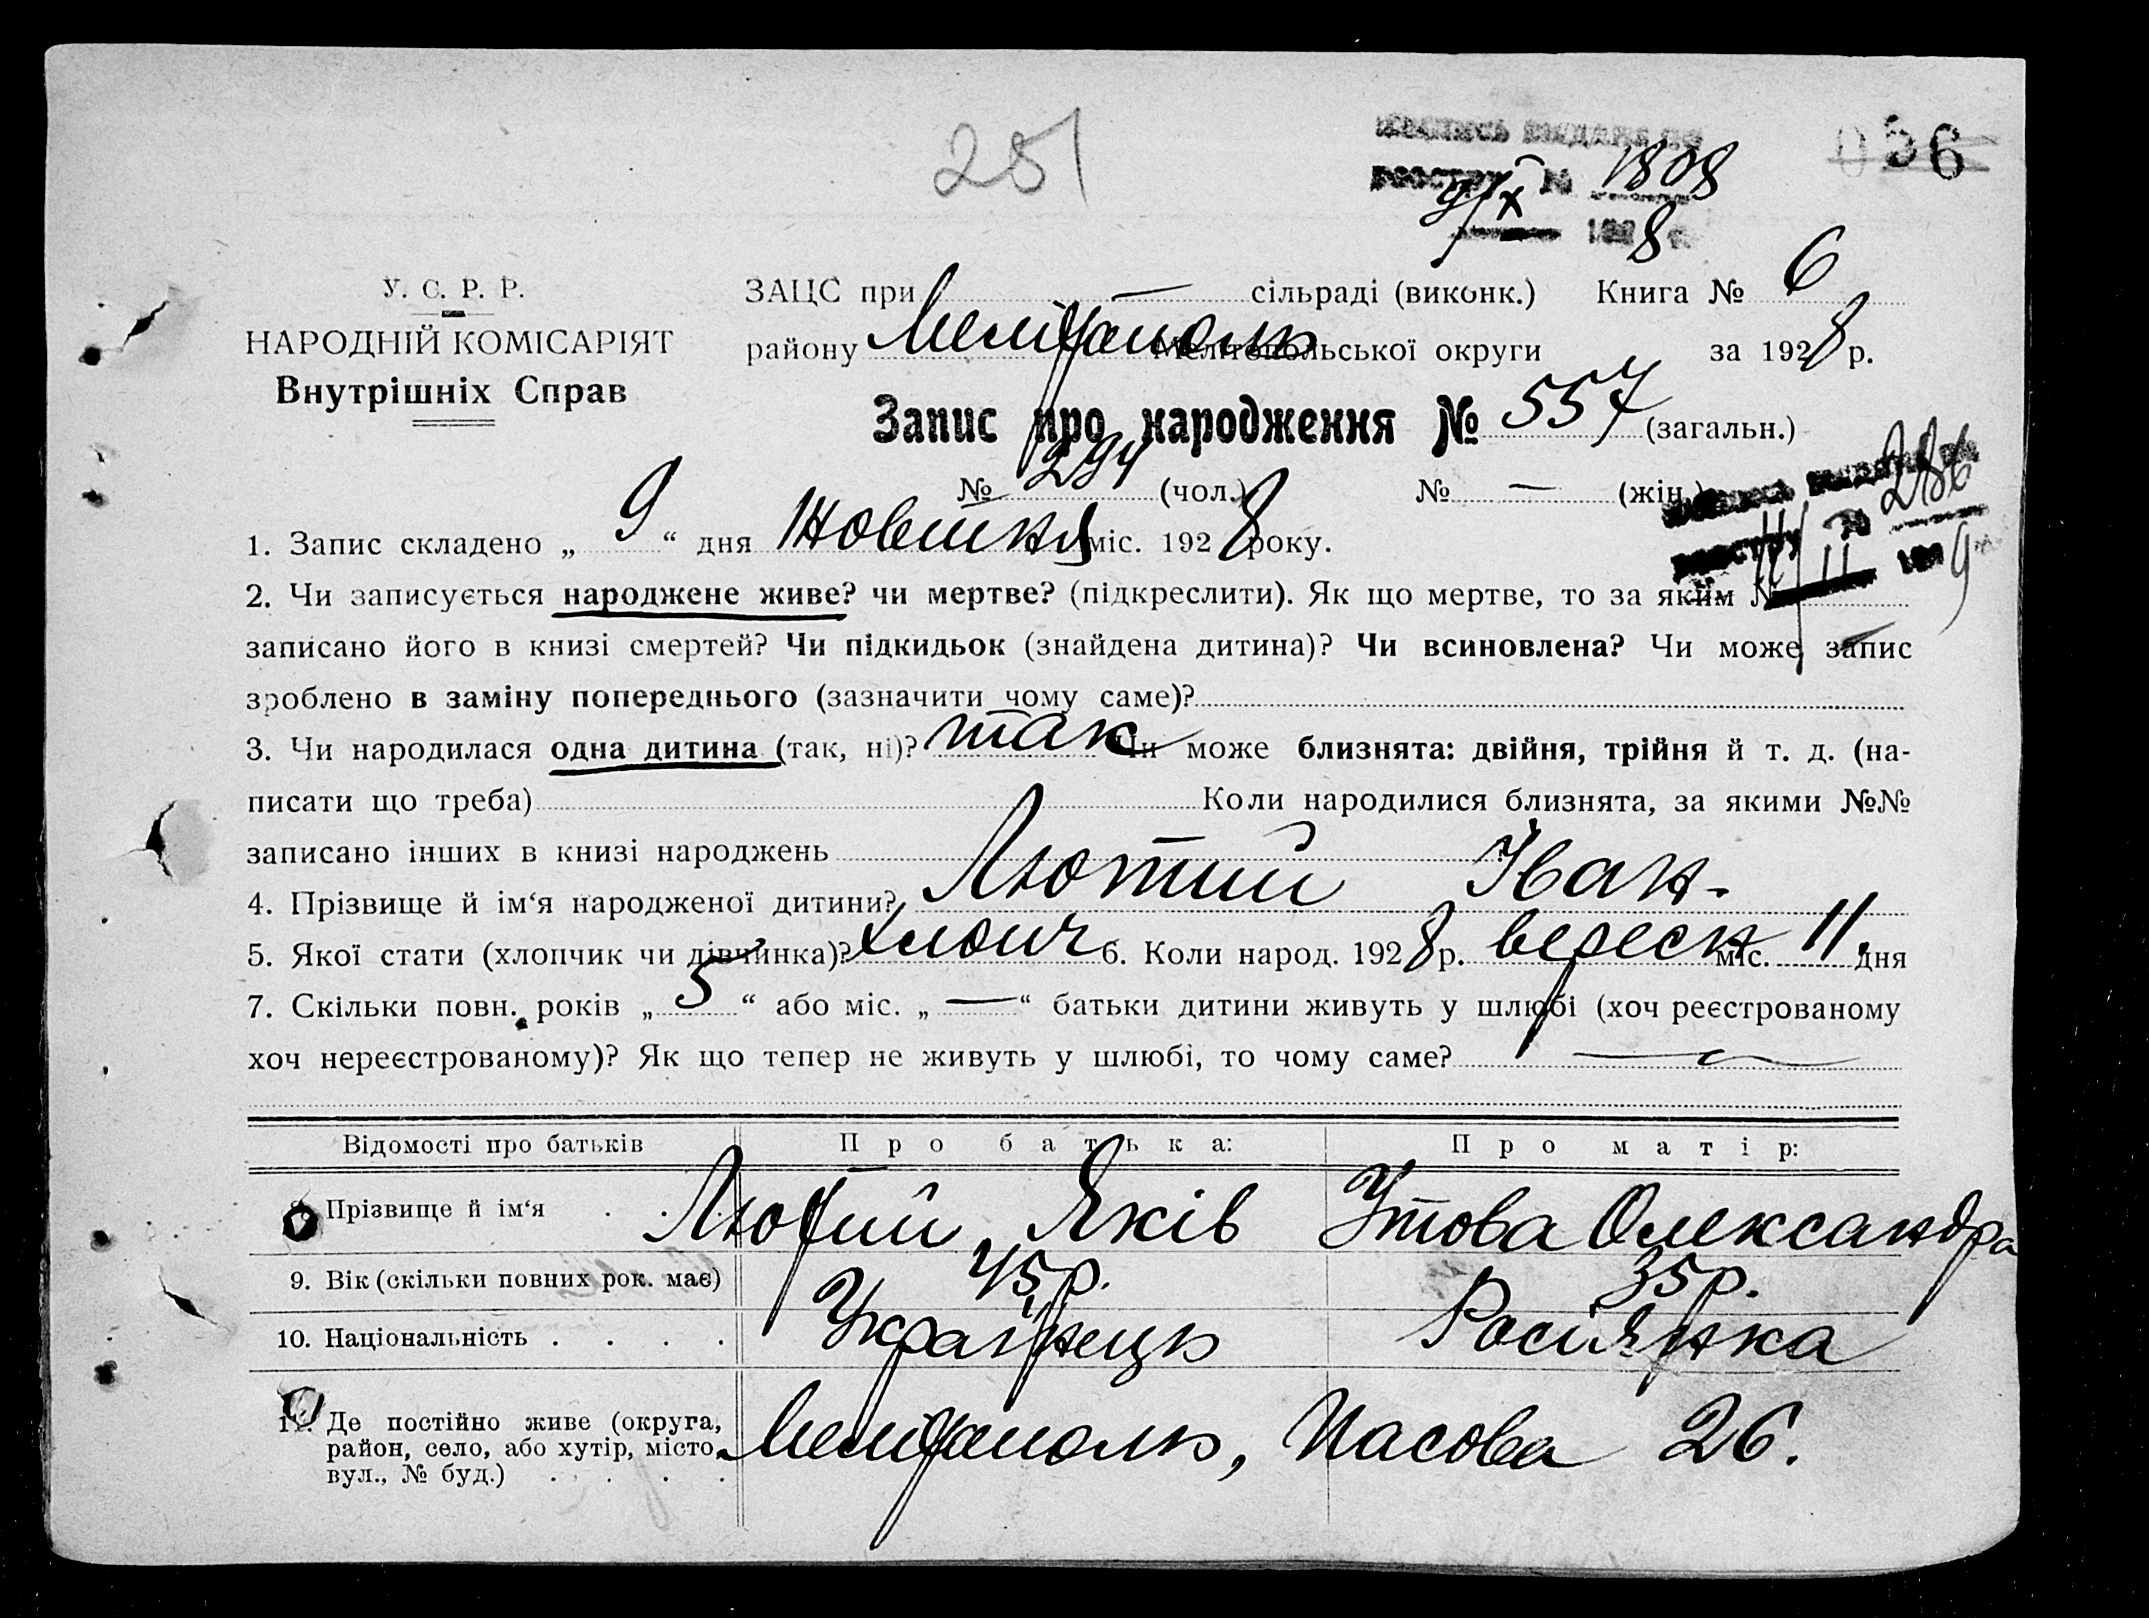 251
1808
056
9/X
1928 г.
У. С. Р. Р.
НАРОДНІЙ КОМІСАРІЯТ
Внутрішніх Справ
ЗАЦС при — сільраді (виконк.) Книга № 6
району Мелітополь Мелітопольської округи за 1928 р.
Запис про народження № 557 (загальн.)
№ 294 (чол.) № — (жін.)
286
1. Запис складено „ 9 “ дня Жовтня міс. 1928 року.
2. Чи записується народжене живе? чи мертве? (підкреслити). Як що мертве, то за яким №
записано його в книзі смертей? Чи підкидьок (знайдена дитина)? Чи всиновлена? Чи може запис
зроблено в заміну попереднього (зазначити чому саме)?
3. Чи народилася одна дитина (так, ні)? так Чи може близнята: двійня, трійня й т. д. (на-
писати що треба) Коли народилися близнята, за якими №№
записано інших в книзі народжень
4. Прізвище й ім‘я народженої дитини? Лютий Іван.
5. Якої стати (хлопчик чи дівчинка)? хлопч 6. Коли народ. 1928 р. вересн міс. 11 дня
7. Скільки повн. років „ 5 “ або міс. „ — “ батьки дитини живуть у шлюбі (хоч реєстрованому
хоч нереєстрованому)? Як що тепер не живуть у шлюбі, то чому саме? —
Відомості про батьків Про батька: Про матір:
8. Прізвище й ім‘я Лютий Яків Утова Олександра
9. Вік (скільки повних рок. має) 45 р. 35 р.
10. Національність Українець Росіянка
11. Де постійно живе (округа,
район, село, або хутір, місто, Мелітополь, Часова 26.
вул., № буд.)